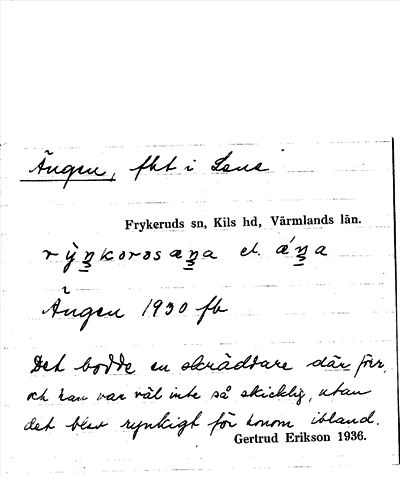 Ängen, fbt i Lene
Frykeruds sn, Kils hd, Värmlands län.
rỳŋkorosæŋa el. ǽŋa
Ängen 1930 fb
Det bodde en skräddare där förr,
och han var väl inte så skicklig, utan
det blev rynkigt för honom ibland.
Gertrud Erikson 1936.